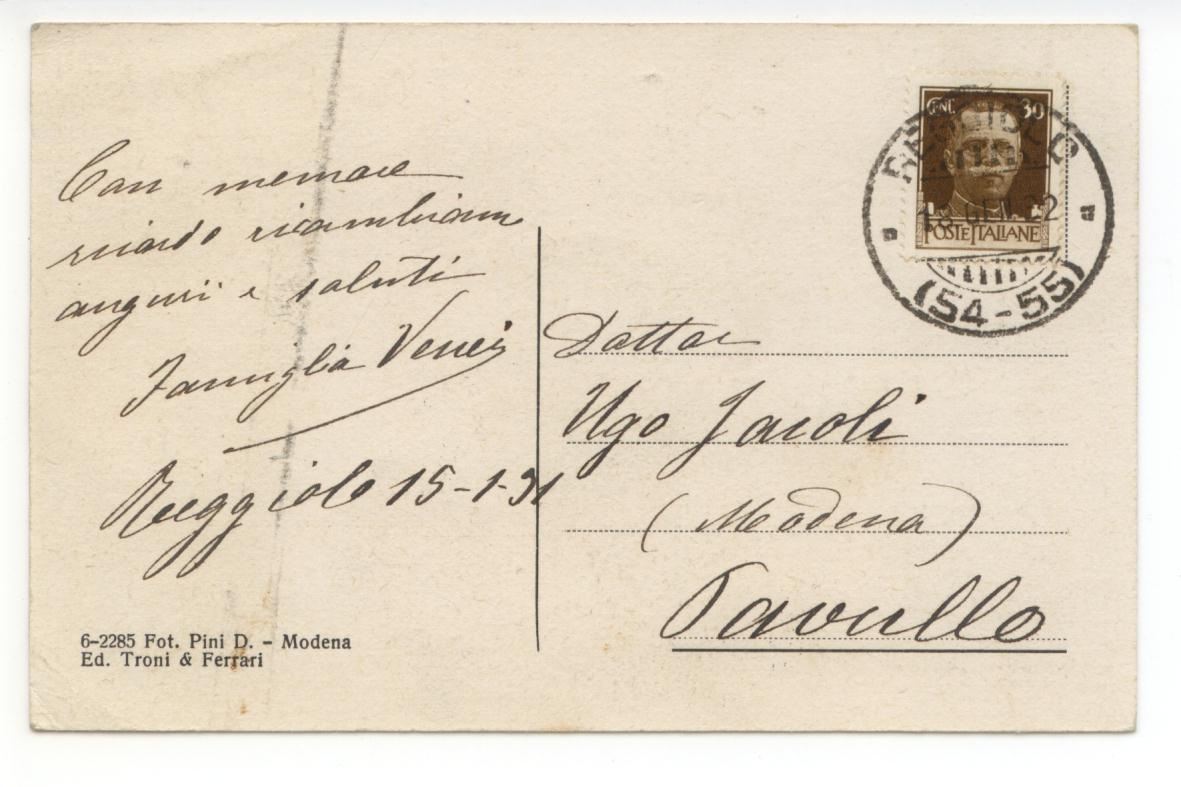 Con memore
ricordo ricambiamo
auguri e saluti
Famiglia
Reggiolo 15-1-31
6-2285 Fot. Pini D. - Modena
Ed. Troni & Ferrari
CENT. 30
POSTE ITALIANE
REGGIOLO
GEN. 32
(54-55)
Dottor
Ugo Jacoli
(Modena)
Pavullo